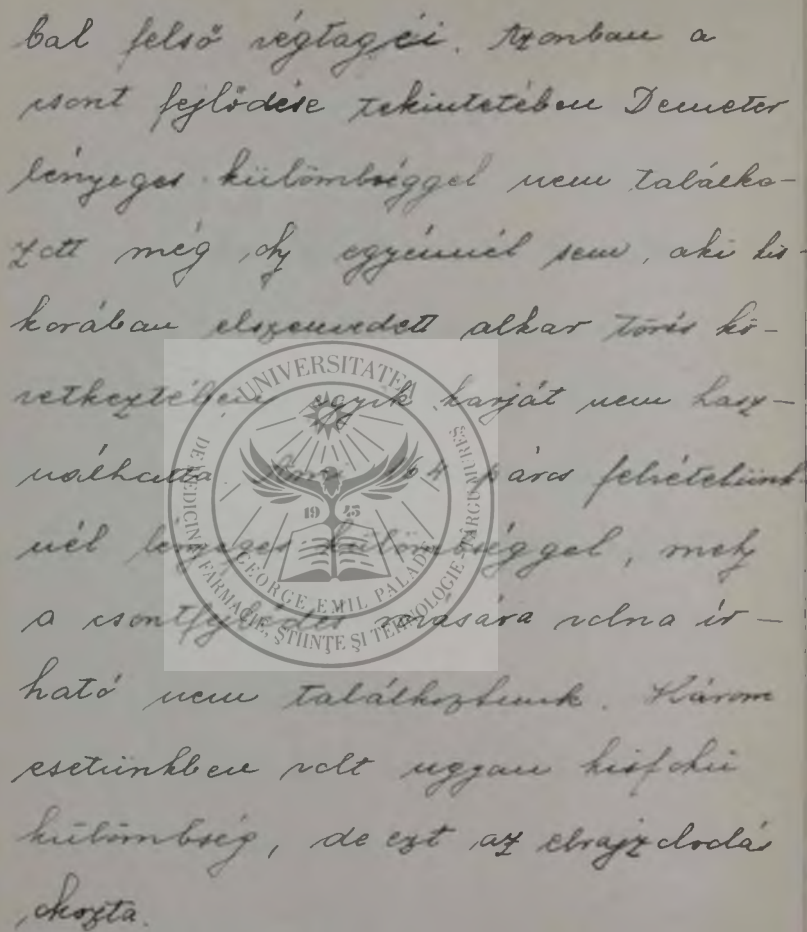 bal felső végtagéi. Azonban a
csont fejlődése tekintetében Demeter
lényeges külömbséggel nem találko-
zott még oly egyénnél sem, aki kis-
korában elszenvedett alkar törés kö-
vetkeztében egyik karját nem hasz-
nálhatta. 164 páros felvételünk-
nél lényeges külömbséggel, mely
a csontfejlődés rovására volna ír-
ható nem találkoztunk. Három
esetünkben volt ugyan kisfokú
külömbség, de ezt az elrajzolodás
okozta.
UNIVERSITATEA
DE MEDICINĂ, FARMACIE, ȘTIINȚE ȘI TEHNOLOGIE
GEORGE EMIL PALADE
1945